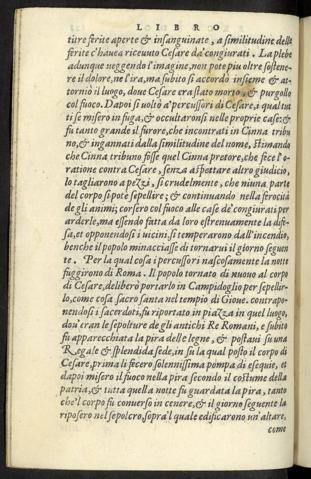 LIBRO
titre ferite aperte & insanguinate, a similitudine delle
ferite c'hauea riceuuto Cesare da' congiurati. La plebe
adunque ueggendo l'imagine, non pote piu oltre sostene-
re il dolore, ne l'ira, ma subito si accordò insieme & at-
torniò il luogo, doue Cesare era stato morto, & purgollo
col fuoco. Dapoi si uoltò a' percussori di Cesare, i quai tut
ti se misero in fuga, & occultaronsi nelle proprie case: &
fu tanto grande il furore, che incontrati in Cinna tribu
no, & ingannati dalla similitudine del nome, stimando
che Cinna tribuno fosse quel Cinna pretore, che fece l'o-
ratione contra Cesare, senza aspettare altro giudicio,
lo tagliarono a pezzi, si crudelmente, che niuna parte
del corpo si potè sepellire; & continuando nella ferocità
de gli animi; corsero col fuoco alle case de' congiurati per
arderle, ma essendo fatta da loro estrenuamente la dife-
sa, et opponendosi i uicini, si temperarono dall'incendio,
benche il popolo minacciasse di tornarui il giorno seguen
te. Per la qual cosa i percussori nascosamente la notte
fuggirono di Roma. Il popolo tornato di nuouo al corpo
di Cesare, deliberò portarlo in Campidoglio per sepellir-
lo, come cosa sacro santa nel tempio di Gioue. contrapo-
nendosi i sacerdoti, fu riportato in piazza in quel luogo,
dou'eran le sepolture de gli antichi Re Romani, e subito
fu apparecchiata la pira delle legne, & postaui su una
Regale & splendida sede, in su la qual posto il corpo di
Cesare, prima li fecero solennissima pompa di esequie, et
dapoi misero il fuoco nella pira secondo il costume della
patria, & tutta quella notte fu guardata la pira, tanto
che'l corpo fu conuerso in cenere, & il giorno seguente la
riposero nel sepolcro, sopra'l quale edificarono un'altare,
come